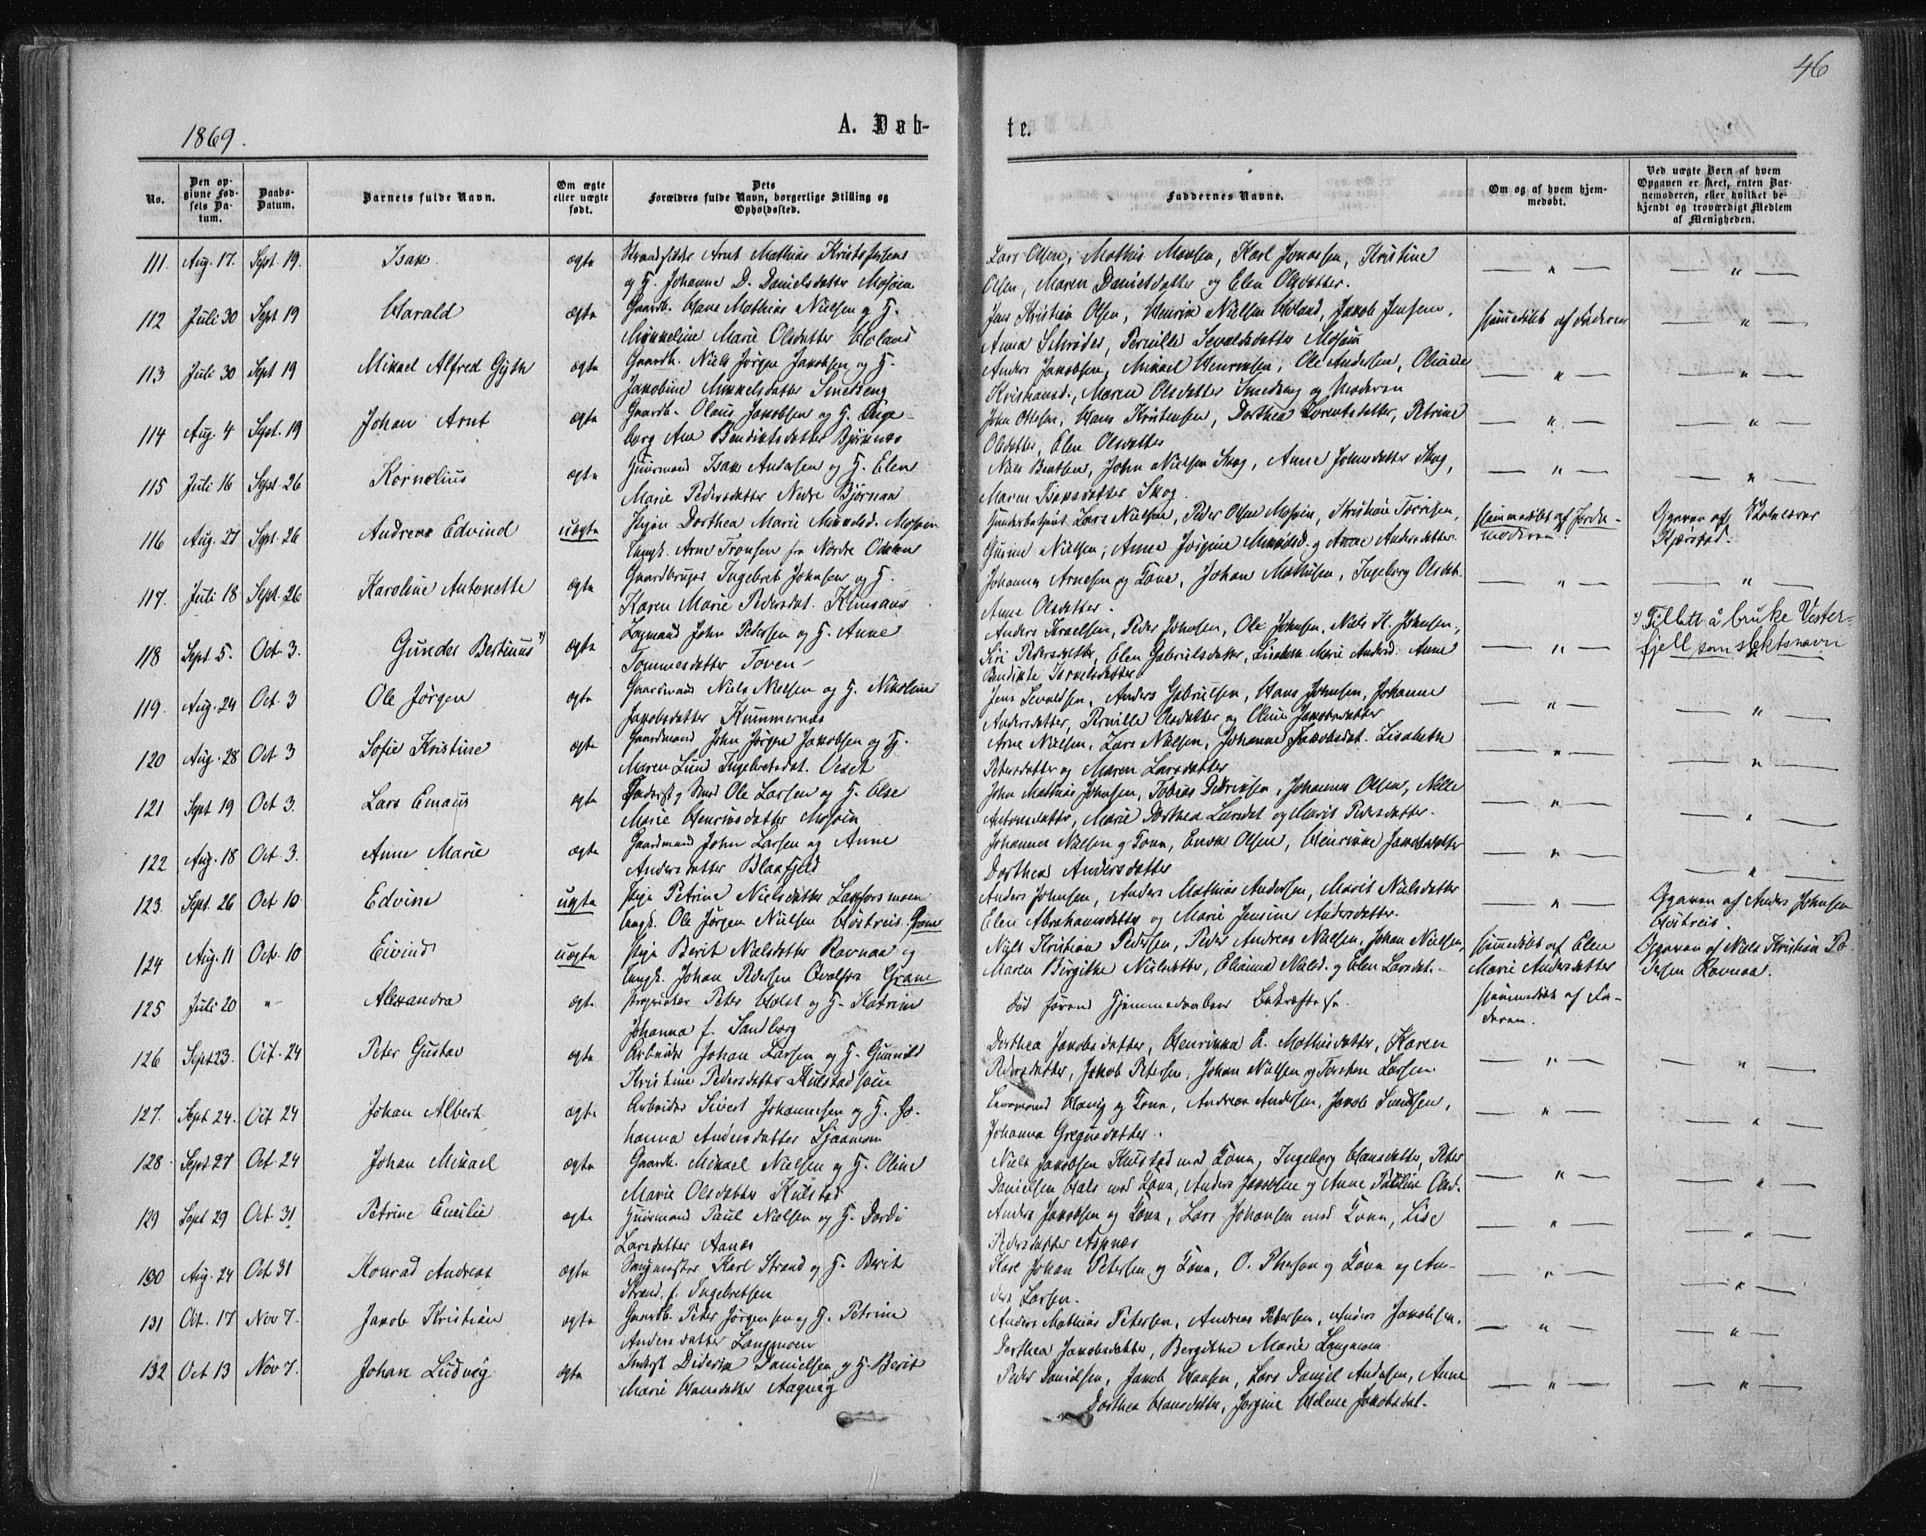 46
1869.
A. Døb-
te.
No.
Den op-
givne Fød-
sels Da-
tum.
Daabs-
Datum.
Barnets fulde Navn.
Om ægte
eller uægte
født.
Dets
Forældres fulde Navn, borgerlige Stilling og
Opholdssted.
Faddernes Navne.
Om og af hvem hjem-
medøbt.
Ved uægte Børn af hvem
Opgaven er skeet, enten Bar-
nemoderen, eller hvilket be-
kjendt og troværdigt Medlem
af Menigheden.
111. Aug. 17. Sept. 19. Isak. ægte Strandsidder Arnt Mathias Kristoffersen
og H. Johanne D. Danielsdatter Mosøen
Lars Olsen, Mathis Monsen, Karl Jonasen, Kristine
Olsen, Maren Danielsdatter og Elen Olsdatter.
112 Juli 30 Sept 19 Harald ægte Gaardb. Hans Mathias Nielsen og H.
Mikkeline Marie Olsdatter Holand
Jens Kristian Olsen, Henrik Nielsen Holand, Jakob Jensen,
Anna Schrøder, Pernille Sevaldsdatter Mosøen
hjemmedøbt af Faderen
113 Juli 30 Sept 19 Mikael Alfred Gjøth ægte Gaardb. Niels Jørgen Jakobsen og H.
Jakobine Mikkelsdatter Smedseng
Anders Jakobsen, Mikael Henriksen, Ole Andersen, Oline
Kristiansd., Maren Olsdatter Smedseng og Moderen
114 Aug. 4 Sept. 19 Johan Arnt ægte Gaardb. Olaus Jakobsen og H. Inge-
borg Ane Bendiktsdatter Bjørnaas
John Ottesen, Hans Kristensen, Dorthea Lorentsdatter, Petrine
Olsdatter, Elen Olsdatter
115 Juli 16 Sept. 26 Kornelius ægte Huusmand Isak Andersen og H. Elen
Marie Pedersdatter Nedre Bjørnaa
Niels Bentsen, John Nielsen Skog, Anne Johnsdatter Skog,
Maren Isaksdatter Skog
116 Aug. 27 Sept. 26 Andreas Edvind uægte Pigen Dorthea Marie Mikkelsd. Mosøen
Ungk. Arne Tronsen fra Nordre Odalen
Lars Nielsen, Peder Olsen Mosøen, Kristian
Nielsen, Anne Jørgine Mikkelsd. og Anne Andersdatter
hjemmedøbt af Jorde-
moderen
Opgaven af
Kjærstad.
117 Juli 18 Sept. 26 Karoline Antonette ægte Gaardbruger Ingebret Johnsen og H.
Karen Marie Pedersdat.
Johannes Arnesen og Kone, Johan Mathisen, Ingeborg Olsdat.
Anne Olsdatter.
118 Sept 5. Oct. 3. Gunder Bertinus x) ægte Lægmand John Pedersen og H. Anne
Tommesdatter Toven
Anders Israelsen, Peder Johnsen, Ole Johnsen, Niels H. Johnsen,
Siri Pedersdatter, Elen Gabrielsdatter, Marie Andersd. Anne
Bendikte Israelsdatter
x) Tillatt å bruke Vester-
fjell som slektsnavn
119. Aug. 24 Oct. 3 Ole Jørgen ægte Gaardmand Niels Nielsen og H. Nikoline
Jakobsdatter Kummernes
Jens Sevaldsen, Anders Gabrielsen, Hans Johnsen, Johanne
Andersdatter, Pernille Olsdatter og Oline Jakobsdatter
120 Aug. 28 Oct 3 Sofie Kristine ægte Gaardmand John Jørgen Jakobsen og H.
Maren Lund Ingebretsdat.
Arne Nielsen, Lars Nielsen, Johanne Jakobsdat. Lisabeth
Petersdatter og Maren Larsdatter
121 Sept 19 Oct 3. Lars Emaus ægte Ole Larsen og H. Else
Marie Henriksdatter Mosøen
John Mathias Johnsen, Tobias Didriksen, Johannes Olsen, Nille
Antonsdatter, Marie Dorthea Larsdat og Marit Pedersdatter.
122 Aug. 18 Oct. 3. Anne Marie ægte Gaardmand John Larsen og Anne
Andersdatter Blaafjeld
Johannes Nielsen og Kone, Enok Olsen, Henrikke Jakobsdatter
Dorthea Andersdatter
123. Sept. 26 Oct. 10. Edvin uægte Pige Petrine Nielsdatter Laxforsmoen
Ungk. Ole Jørgen Nielsen Høstreis. Grane
Anders Johnsen, Anders Mathias Andersen, Marit Nielsdatter
Elen Abrahamsdatter og Marie Jensine Andersdatter.
Opgaven af Anders Johnsen
Høstreis.
124 Aug. 11 Oct. 10 Eivind uægte Pige Berit Nielsdatter Ravnaa og
Ungk. Johan Pedersen Grane
Niels Kristian Pedersen, Peder Andreas Nielsen, Johan Nielsen,
Maren Birgitte Nielsdatter, Elianna Nielsd. og Elen Larsdat.
hjemmedøbt af Elen
Marie Andersdatter
Opgaven af Niels Kristian Pe-
dersen Ravnaa.
125 Juli 20 " Alexandra ægte Proprietær Peter Holst og H. Katrine
Johanna f. Sandborg
død føren Hjemmedaabens Bekræftelse.
hjemmedøbt af Fa-
deren.
126 Sept 23. Oct. 24 Peter Gustav ægte Arbeider Johan Larsen og H. Gunnild
Kristine Pedersdatter Kulstadsøen
Dorthea Jakobsdatter, Henrikka E. Mathisdatter, Karen
Pedersdatter, Jakob Petersen, Johan Nielsen og Torsten Larsen
127. Sept 24. Oct 24 Johan Albert ægte Arbeider Sivert Johannesen og H. Jo-
hanna Andersdatter Sjaamoen
Lensmand Havig og Kone, Andreas Andersen, Jakob Sundsen,
Johanna Gregusdatter.
128 Sept 27 Oct. 24 Johan Mikael ægte Gaardb. Mikael Nielsen og H. Oline
Marie Olsdatter Kulstad
Niels Jakobsen Kulstad med Kone, Ingeborg Hansdatter, Peter
Danielsen Hals med Kone, Anders Jakobsen og Anne Pauline Olsd.
129 Sept 29 Oct. 31 Petrine Emilie ægte Huusmand Paul Nielsen og H. Dordi
Larsdatter Aanes
Anders Jakobsen og Kone, Lars Johansen med Kone, Lise
Pedersdatter Aspnes
130 Aug. 24 Oct 31 Konrad Andreas ægte Sagmester Karl Strand og H. Berit
Strand, f. Ingebretsen
Karl Johan Petersen og Kone, O. og Kone og An-
ders Larsen.
131 Oct. 17 Nov 7. Jakob Kristian ægte Gaardb. Peter Jørgensen og H. Petrine
Andersdatter Langmoen
Anders Mathias Petersen, Andreas Petersen, Anders Jakobsen,
Dorthea Jakobsdatter, Bergitthe Marie Langmoen
132 Oct 13 Nov 7. Johan Ludvig ægte Inderst Diderik Danielsen og H. Berit
Marie Hansdatter Aagvig
Peder Danielsen, Jakob Hansen, Lars Daniel Andersen, Anne
Dorthea Hansdatter, Jørgine Helene Jakobsdat.